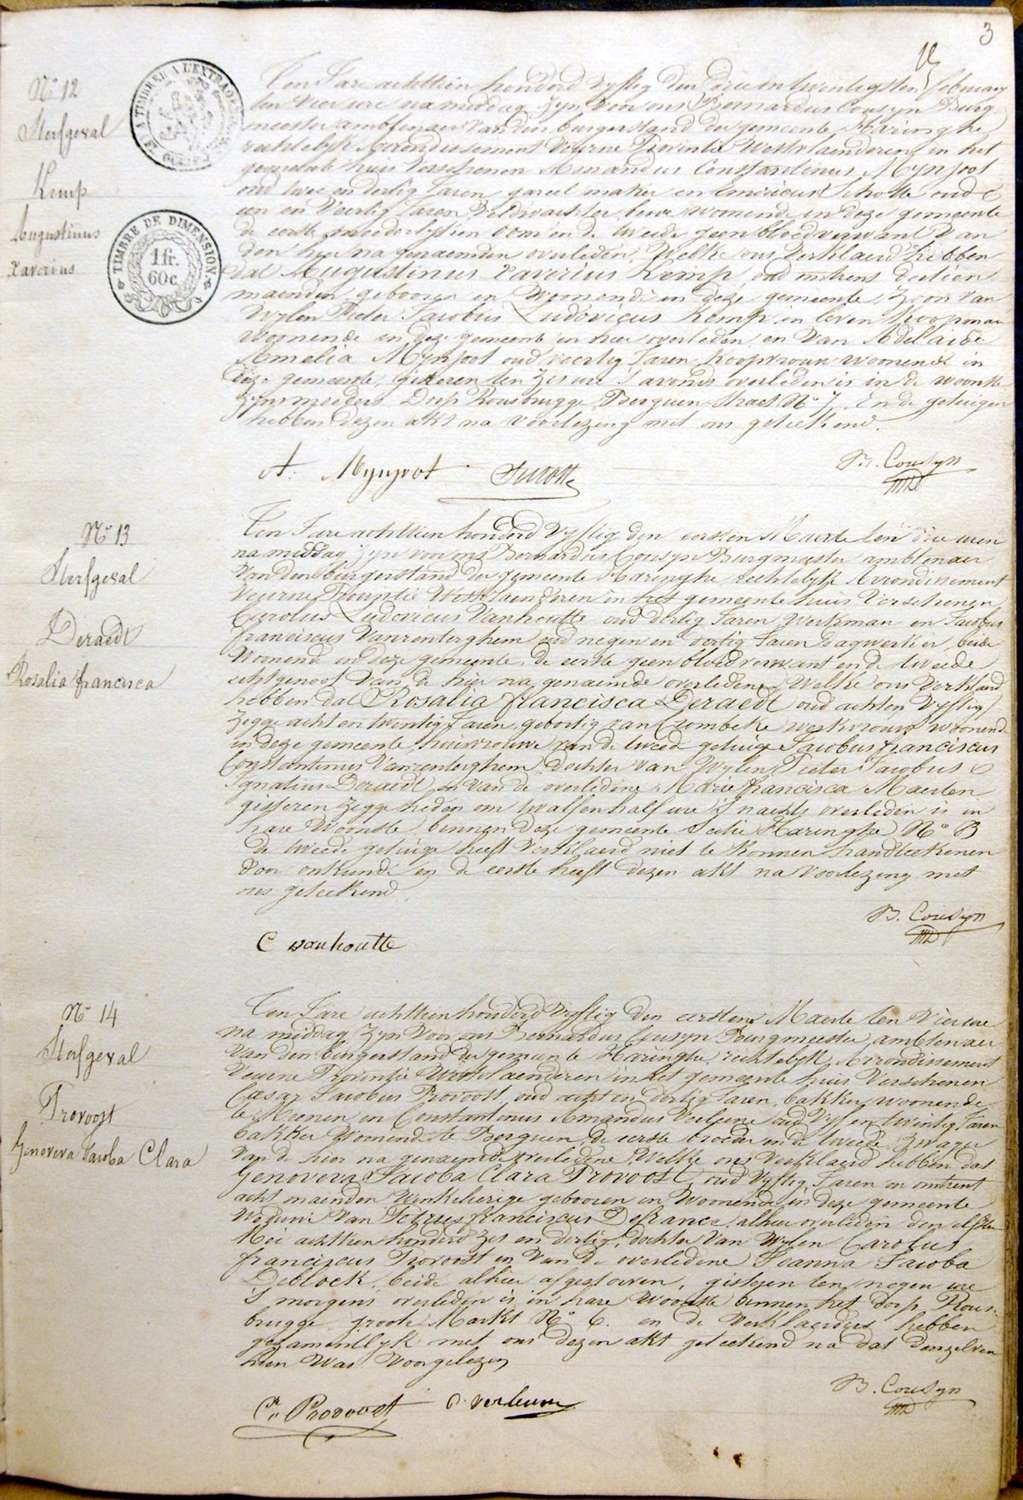 3
Nr 12
Sterfgeval
Kemp
Augustinus
Xaverius
TIMBRE A L'EXTRAORD.
TIMBRE DE DIMENSION.
1 fr.
60 c.
Ten Jare achttien honderd vyftig den drie en twintigsten february
ten vier ure na middag zyn voor ons Bernardus Cousyn Burg
meester ambtenaer van den burgerstand der gemeente Haringhe
rechtelyk Arrondissement Veurne Provintie Westvlaenderen in het
gemeente huis verschenen Amandus Constantinus Mynsoot
oud twee en dertig Jaren, gareel maker en Americus Schotte oud
een en veertig Jaren Veldwachter beide woonende in deze gemeente
de eerste moederlyken oom en de tweede geen bloedverwant van
den hier na genaemden overleden, Welke ons verklaerd hebben
dat Augustinus Xaverius Kemp, oud mitrens dertien
maenden geboren en Woonende in deze gemeente, Zoon van
Wylen Pieter Jacobus Ludovicus Kemp in leven koopman
Woonende in deze gemeente en hier overleden en van Adelaide
Amelia Mynsoot oud veertig Jaren koopvrouw woonende in
deze gemeente, gisteren ten zes ure 's avonds overleden is in de woonste
zyns moeders Dorp Rousbrugge Berguen-straet No 7. En de getuigen
hebben dezen akt na voorlezing met ons geteekend.
A. Mynsoot
B. Cousyn
Nr 13
Sterfgeval
Deraedt
Rosalia francisca
Ten Jare achttien honderd vyftig den eersten Maerte ten drie uren
na middag zyn voor ons Bernardus Cousyn Burgmeester ambtenaer
van den burgerstand der gemeente Haringhe rechtelyk Arrondissement
Veurne Provintie Westvlaenderen in het gemeente huis verschenen
Carolus Ludovicus Vanhoutte oud dertig Jaren Werkman en Jacobus
franciscus Vanrenterghem oud negen en dertig Jaren Dagwerker, beide
Woonend in deze gemeente, de eerste geen bloedverwant en de tweede
echtgenoot van de hier na genaemde overledene, Welke ons verklaerd
hebben dat Rosalia francisca Deraedt oud achten vyftig
zegge acht en twintig Jaren, geboortig van Crombeke werkvrouw woonend
in deze gemeente huisvrouwe van de tweede getuige Jacobus franciscus
Constantinus Vanrenterghem, Dochter van Wylen Pieter Jacobus
Ignatius Deraedt en van de overledene Marie francisca Maerten
gisteren zegge heden om twalf en half ure 's nachts overleden is in
hare Woonste binnen deze gemeente Sectie Haringhe No B
De tweede getuige heeft verklaerd niet te konnen handteekenen
door onkunde en de eerste heeft dezen akt na voorlezing met
ons geteekend.
B. Cousyn
C vanhoutte
Nr 14
Sterfgeval
Provoost
Genoveva Jacoba Clara
Ten Jare achttien honderd vyftig den eersten Maerte ten vier ure
na middag zyn voor ons Bernardus Cousyn Burgmeester, ambtenaer
van den burgerstand der gemeente Haringhe, rechtelyk Arrondissement
Veurne Provintie Westvlaenderen in het gemeente huis verschenen
Cesar Jacobus Provoost, oud acht en dertig Jaren, bakker, woonende
te Kronen en Constantinus Amandus Verleure oud vyf en twintig Jaren
bakker Woonende te Berguen, de eerste broeder en de tweede zwager
van de hier na genaemde overledene, Welke ons verklaerd hebben dat
Genoveva Jacoba Clara Provoost, oud vyftig Jaren en omtrent
acht maenden Winkelierige geboren en Woonende in deze gemeente
Weduwe van Petrus franciscus Defrance, alhier overleden den elfste
Mei achttien honderd zes en dertig, dochter van Wylen Carolus
franciscus Provoost en van de overledene Joanna Jacoba
Deblock, beide alhier afgestorven, gisteren ten negen ure
's morgens overleden is in hare Woonste binnen het dorp Rous-
brugge groote Markt No 6. en de Verklaerders hebben
gezamentlyk met ons dezen akt geteekend na dat denzelven
hun was voorgelezen
B. Cousyn
Cr Provoost